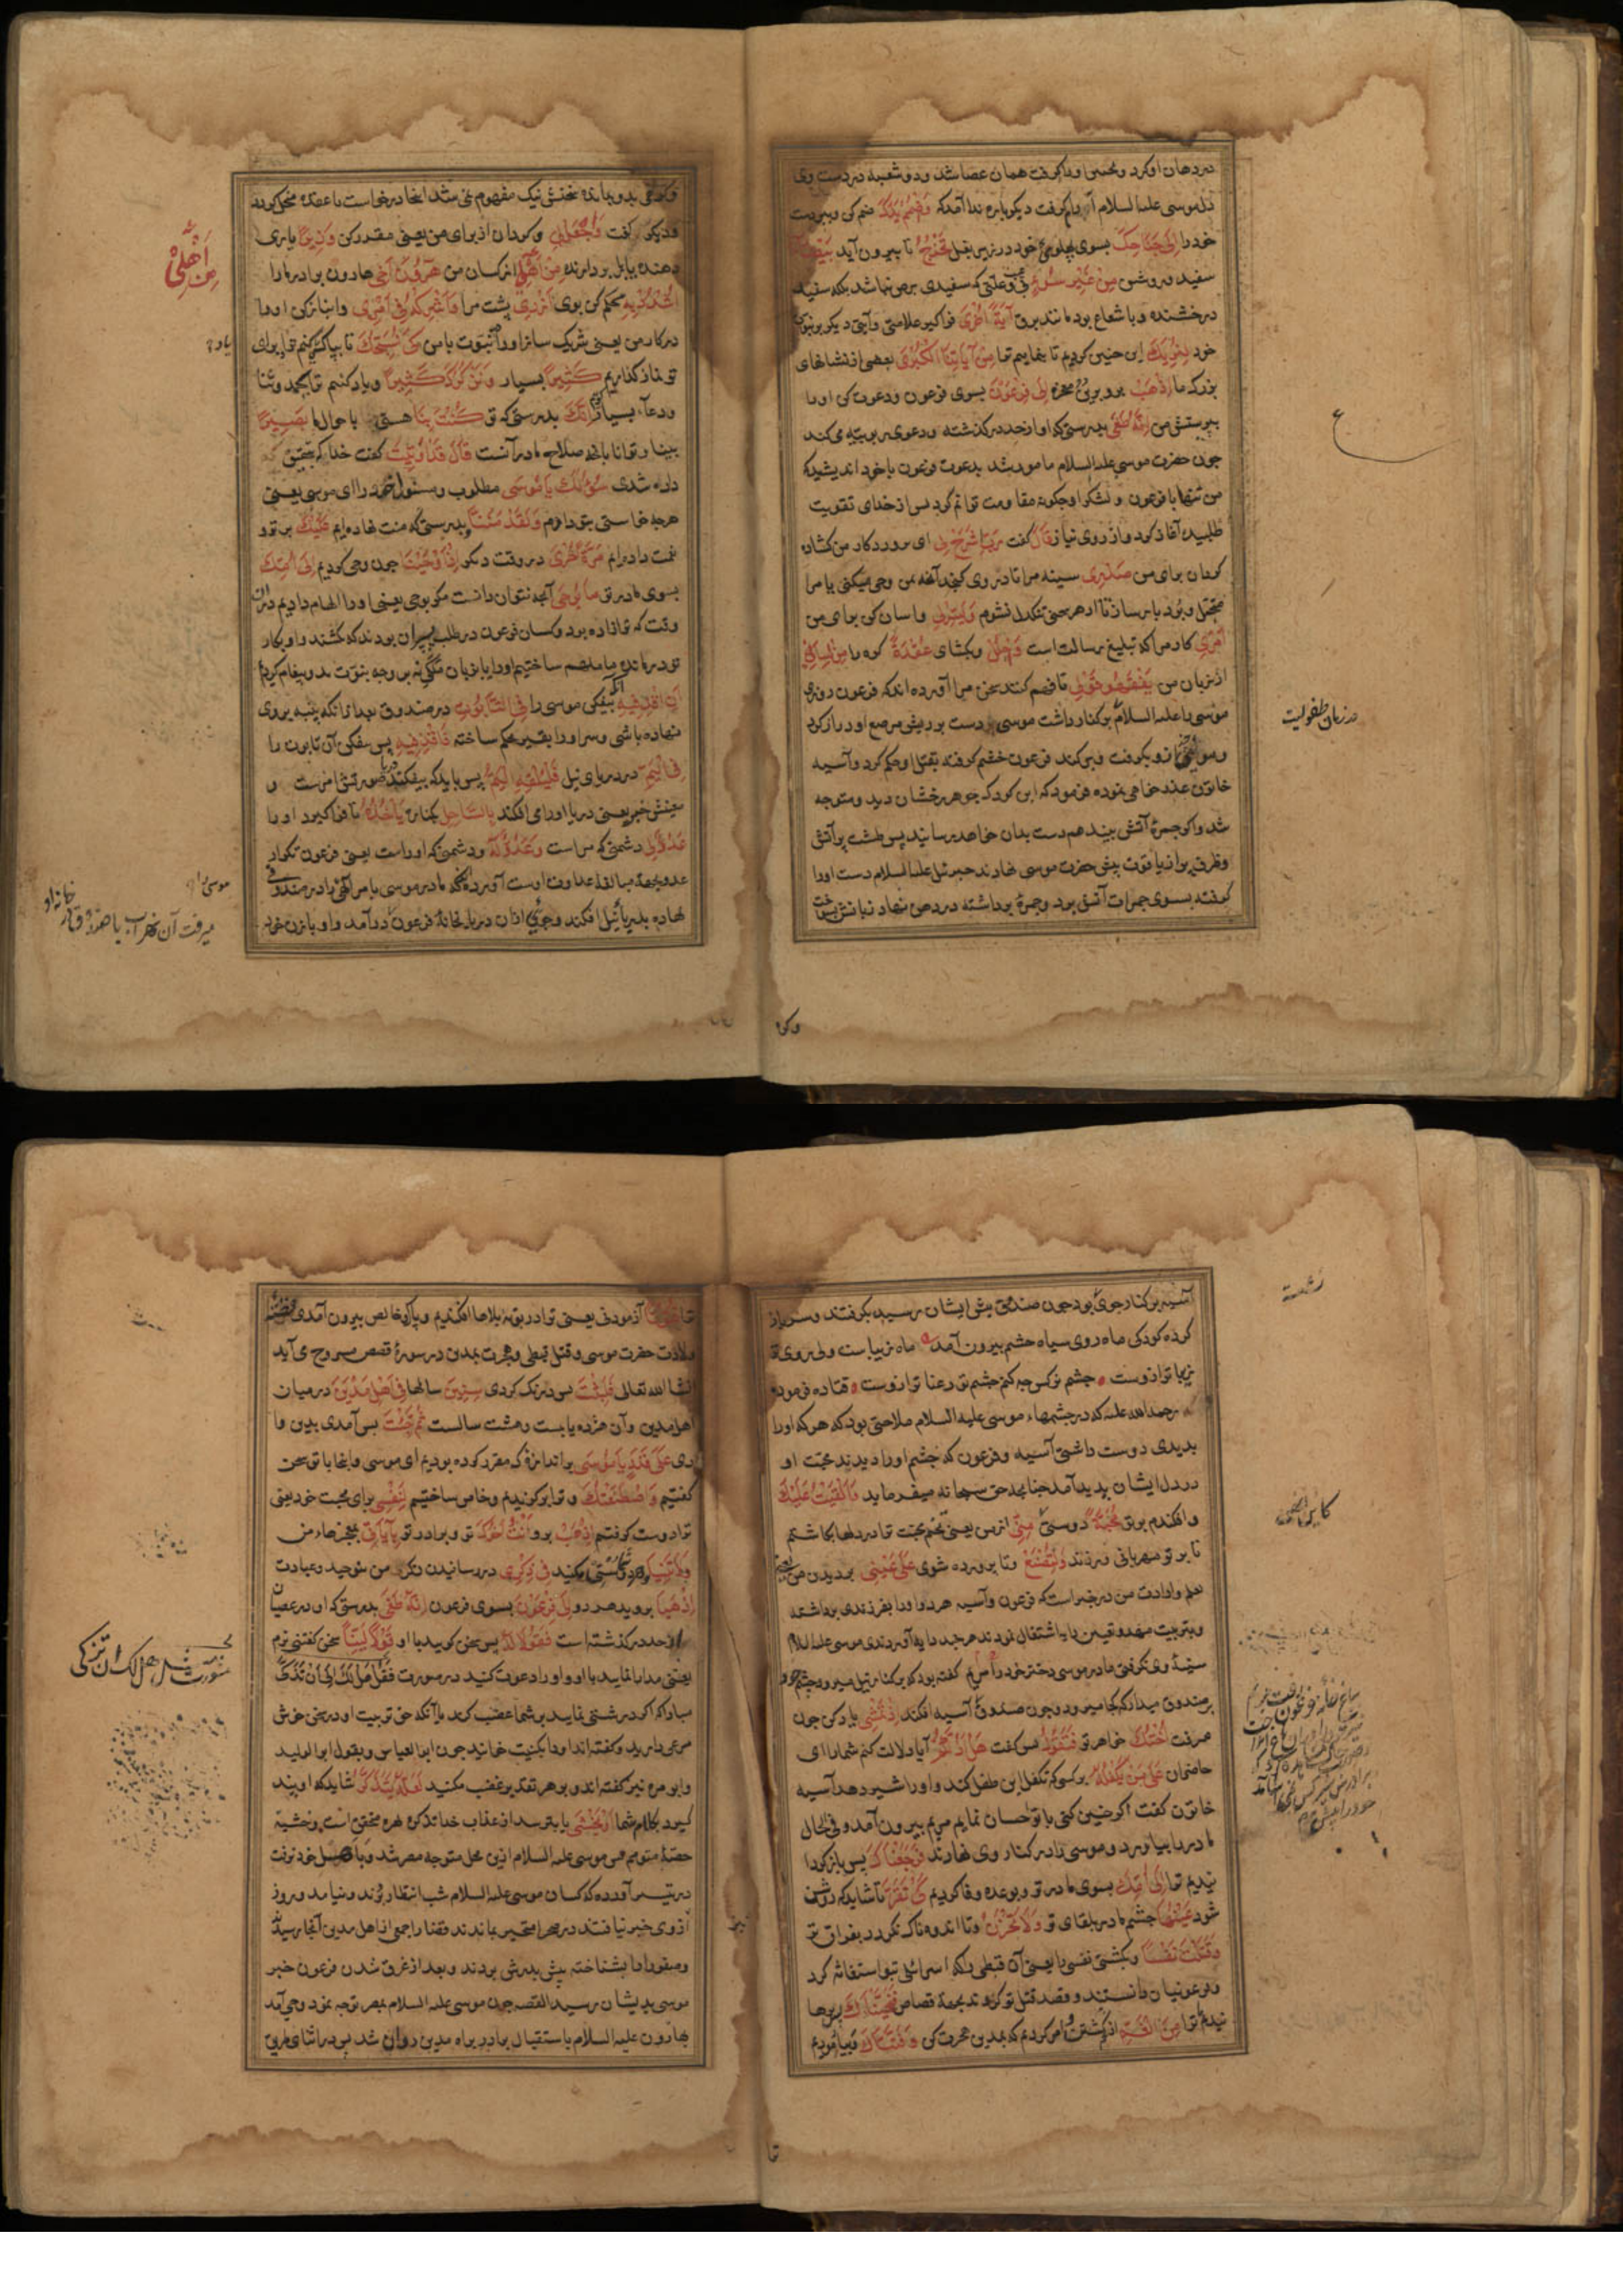 در دهان او کرد و همان عصا شد و دو شعبه در دست وی
موسی علیه السلام آرام گرفت دیگر باره ندا آمد که وَاضْمُمْ یَدَكَ ضم کن و ببر دست
خود را اِلی جَنَاحِكَ بسوی پهلوی خود در زیر بغل تَخْرُجْ تا بیرون آید بَیْضَاءَ
سفید و روشن مِنْ غَیْرِ سُوءٍ بی علتی که سفیدی برص نباشد بلکه سفید
درخشنده و با شعاع بود مانند برق آیَةً اُخْرَی فراگیر علامتی و آیتی دیگر بر نبوت
خود لِنُرِیَكَ این چنین کردیم تا بنماییم ترا مِنْ آیَاتِنَا الْکُبْرَی بعضی از نشانهای
بزرگ ما اِذْهَبْ برو بدین معجزه اِلی فِرْعَوْنَ بسوی فرعون و دعوت کن او را
بپرستش من اِنَّهُ طَغَی بدرستی که او از حد در گذشته و دعوی ربوبیه می کند
چون حضرت موسی علیه السلام مامور شد بدعوت فرعون با خود اندیشید که
من تنها با فرعون و لشکر او چگونه مقاومت توانم کرد پس از خدای تقویت
طلبیدن آغاز کرد و از روی نیاز قَالَ گفت رَبِّ اشْرَحْ لِی ای پروردگار من گشاده
گردان برای من صَدْرِی سینه مرا تا در وی گنجد آنچه بمن وحی میکنی یا مرا
متحمل و بردبار ساز تا از هر سخنی تنگدل نشوم وَیَسِّرْ لِی و آسان کن برای من
اَمْرِی کار مرا که تبلیغ رسالت است وَاحْلُلْ و بگشای عُقْدَةً گره را مِنْ لِسَانِی
از زبان من یَفْقَهُوا قَوْلِی تا فهم کنند سخن مرا آورده اند که فرعون روزی
موسی را علیه السلام بر کنار داشت موسی دست بریش مرصع او دراز کرد
و موی بگرفت و بر کند فرعون خشم گرفته بقتل او حکم کرد و آسیه
خاتون عذر خواهی نموده فرمود که این کودک جوهر رخشان دید و متوجه
شد و اگر جمره آتش بیند هم دست بدان خواهد رسانید پس طشت پر آتش
و ظرفی پر از یاقوت پیش حضرت موسی نهادند جبرئیل علیه السلام دست او را
گرفته بسوی جمرات آتش برد و جمره برداشته در دهن نهاد زبانش بسوخت
در زمان طفولیت
و گرهی بدو بمانده سخنش نیک مفهوم نمی شد اینجا درخواست تا عقده منحل گردد
و دیگر گفت وَاجْعَلْ لِی و گردان از برای من یعنی مقدر کن وَزِیرًا یاری
دهنده یا بار بردارنده مِنْ اَهْلِی از کسان من هَارُونَ اَخِی هارون برادر ما را
اُشْدُدْ بِهِ محکم کن بوی اَزْرِی پشت مرا وَاَشْرِکْهُ فِی اَمْرِی و انباز کن او را
در کار من یعنی شریک ساز او را در نبوت با من کَیْ نُسَبِّحَكَ تا بپاکی یاد کنیم ترا و برای
تو نماز گذاریم کَثِیرًا بسیار وَنَذْکُرَكَ کَثِیرًا و یاد کنیم ترا بحمد و ثنا
و دعاء بسیار اِنَّكَ بدرستی که تو کُنْتَ بِنَا هستی با حوال ما بَصِیرًا
بینا و دانا بآنچه صلاح ما در آنست قَالَ قَدْ اُوتِیتَ گفت خدا که بتحقیق
داده شدی سُؤْلَكَ یَا مُوسَی مطلوب و مسئول خود را ای موسی یعنی
هرچه خواستی بتو دادیم وَلَقَدْ مَنَنَّا و بدرستی که منت نهاده ایم عَلَیْكَ بر تو و
نعمت داده ایم مَرَّةً اُخْرَی در وقت دیگر اِذْ اَوْحَیْنَا چون وحی کردیم اِلی اُمِّكَ
بسوی مادر تو مَا یُوحَی آنچه نتوان دانست مگر بوحی یعنی او را الهام دادیم در آن
وقت که ترا زاده بود و کسان فرعون در طلب پسران بودند که بکشند و او بکار
تو درمانده ما ملهم ساختیم او را یا بزبان ملکی نه بر وجه نبوت بدو پیغام کردیم
اَنِ اقْذِفِیهِ آنکه بیفکن موسی را فِی التَّابُوتِ در صندوق بعد از آنکه پنبه بر وی
نهاده باشی و سر او را بقیر محکم ساخته فَاقْذِفِیهِ پس بیفکن آن تابوت را
فِی الْیَمِّ در دریای نیل فَلْیُلْقِهِ الْیَمُّ پس باید که بیفکند دریا صورتش امر است و
معنیش خبر یعنی دریا او را می افکند بِالسَّاحِلِ بکنار یَأْخُذْهُ تا فرا گیرد او را
عَدُوٌّ لِی دشمنی که مراست وَعَدُوٌّ لَهُ و دشمنی که او راست یعنی فرعون تکرار
عدو بجهة مبالغه عداوت اوست آورده که مادر موسی با مر الهی را در صندوقی
نهاده بدریا نیل افکند و جوئی ازان دریا بخانه فرعون در آمد و او با زن خود
مِنْ اَهْلِی
یاد
موسی را
میرفت آن نهر آب با صندوق در خانه او
وکر
آسیه بر کنار جوی بود چون صندوق پیش ایشان رسید بگرفتند و سر باز
کرده کودکی ماه روی سیاه چشم بیرون آمد ماه زیباست ولی روی تو
زیباتر ازوست چشم نرگس چه کنم چشم تو رعناتر ازوست قتاده فرموده
رحمه الله علیه که در چشمهاء موسی علیه السلام ملاحتی بود که هر که او را
بدیدی دوست داشتی آسیه و فرعون که چشم او را دیدند محبت او
در دل ایشان پدید آمد چنانچه حق سبحانه میفرماید وَاَلْقَیْتُ عَلَیْكَ
و افکندم بر تو مَحَبَّةً دوستی مِنِّی از من یعنی تخم محبت ترا در دلها بکاشتم
تا بر تو مهربانی ورزند وَلِتُصْنَعَ و تا پرورده شوی عَلی عَیْنِی بر دیدن من یعنی
بعلم و ارادت من در خبر است که فرعون و آسیه هر دو او را بفرزندی برداشته
و بتربیت مهد و تعیین دایه اشتغال نمودند هر چند دایه آوردندی موسی علیه السلام
سینه وی نگرفتی مادر موسی دختر خود را مریم گفته بود که بر کنار نیل میرو و چشم خود
بر صندوق میدار که کجا میرود و چون صندوق آسیه افکند اِذْ تَمْشِی یاد کن چون
میرفت اُخْتُكَ خواهر تو فَتَقُولُ پس گفت هَلْ اَدُلُّکُمْ آیا دلالت کنم شما را ای
حاضران عَلی مَنْ یَکْفُلُهُ بر کسی که تکفل این طفل کند و او را شیر دهد آسیه
خاتون گفت اگر چنین کنی با تو احسان نمایم مریم بیرون آمد و فی الحال
مادر را بیاورد و موسی را در کنار وی نهادند فَرَجَعْنَاكَ پس باز گردا
نیدیم ترا اِلی اُمِّكَ بسوی مادر تو و بوعده وفا کردیم کَیْ تَقَرَّ تا شاید که روشن
شود عَیْنُهَا چشم مادر بلقای تو وَلَا تَحْزَنَ و تا اندوهناک نگردد بفراق تو
وَقَتَلْتَ نَفْسًا و بکشتی نفسی را یعنی آن قبطی را که اسرائیلی بتو استغاثه کرد
و فرعونیان دانستند و قصد قتل تو کردند بجهة قصاص فَنَجَّیْنَاكَ پس رها
نیدیم ترا مِنَ الْغَمِّ از کشتن و امر کردیم که بمدین هجرت کن وَفَتَنَّاكَ و بیازمودیم
ترا فُتُونًا آزمودنی یعنی ترا در بوته بلاها افکندیم و پاک و خالص بیرون آمدی قصه
ولادت حضرت موسی و قتل قبطی و هجرت بمدین در سوره قصص مشروح می آید
انشاالله تعالی فَلَبِثْتَ پس درنگ کردی سِنِینَ سالها فِی اَهْلِ مَدْیَنَ در میان
اهل مدین و آن هژده یا بیست و هشت سالست ثُمَّ جِئْتَ پس آمدی بدین وا
دی عَلی قَدَرٍ یَا مُوسَی بر اندازه که مقرر کرده بودیم ای موسی و اینجا با تو سخن
گفتیم وَاصْطَنَعْتُكَ و ترا برگزیدم و خاص ساختیم لِنَفْسِی برای محبت خود یعنی
ترا دوست گرفتم اِذْهَبْ برو اَنْتَ وَاَخُوكَ تو و برادر تو بِآیَاتِی بمعجزهاء من
وَلَا تَنِیَا و سستی مکنید فِی ذِکْرِی در رسانیدن ذکر من بتوحید و عبادت
اِذْهَبَا بروید هر دو اِلی فِرْعَوْنَ بسوی فرعون اِنَّهُ طَغَی بدرستی که او در عصیان
از حد در گذشته است فَقُولَا لَهُ پس سخن گویید با او قَوْلًا لَیِّنًا سخن گفتنی نرم
یعنی مدارا نمایید با او و او را دعوت کنید در صورت فَقُلْ هَلْ لَكَ اِلی اَنْ تَزَکَّی
مبادا که اگر درشتی نمایید بر شما غضب کند با آنکه حق تربیت او در حق خویش
مرعی دارید و گفته اند او را بکنیت خوانید چون ابو العباس و بقولی ابو الولید
و ابو مره نیز گفته اند و بهر تقدیر غضب مکنید لَعَلَّهُ یَتَذَکَّرُ شاید که او پند
گیرد بکلام شما اَوْ یَخْشَی یا بترسد از عذاب خدا
موسی علیه السلام ازین محل متوجه مصر شد
آورده که کسان موسی علیه السلام شب انتظار بردند و نیامد و روز
از وی خبر نیافتند در صحرا متحیر بماندند قضا را جمعی از اهل مدین آنجا رسیدند
و صفورا را بشناخته پیش پدرش بردند و بعد از غرق شدن فرعون خبر
موسی بدیشان رسید القصه چون موسی علیه السلام بمصر توجه نمود وحی آمد
بهارون علیه السلام باستقبال برادر براه مدین روان شد پس در اثنای طریق
تا